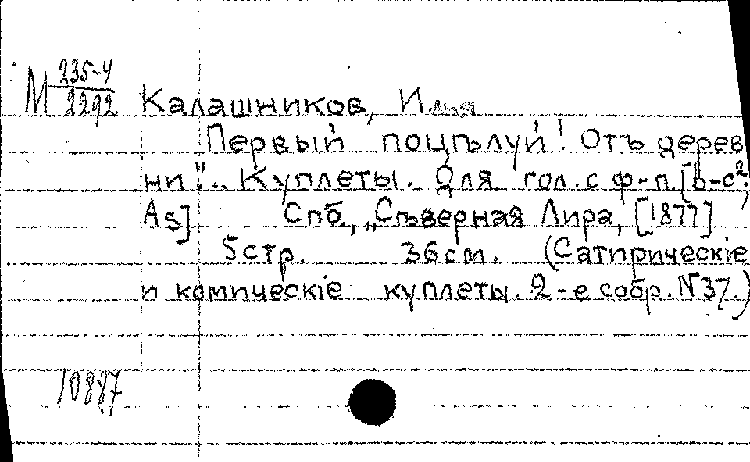 М 235-4/2292 Калашников, Илья
Первый поцѣлуй! Отъ дерев
ни!".. Куплеты. Для гол. с ф-п. [b-c²;
As] Спб., „Сѣверная Лира, [1877]
5 стр. 36 см. (Сатирическіе
и комическіе куплеты. 2-е собр. N 37.)
10887